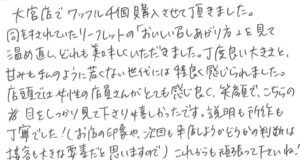 大宮店でワッフル4個購入させて頂きました。
同封されていたリーフレットの「おいしい召しあがり方」を見て
温め直し、どれも美味しくいただきました。丁度良い大きさと、
甘みも私のように若くない世代には特良く感じられました。
店頭では女性の店員さんがとても感じ良く、笑顔で、こちらの
目をしっかり見て下さり嬉しかったです。説明も所作も
丁寧でした！（お店の印象や、次回も来店しようかどうかの判断は
接客も大きな要素だと思いますので）これからも頑張って下さいね！